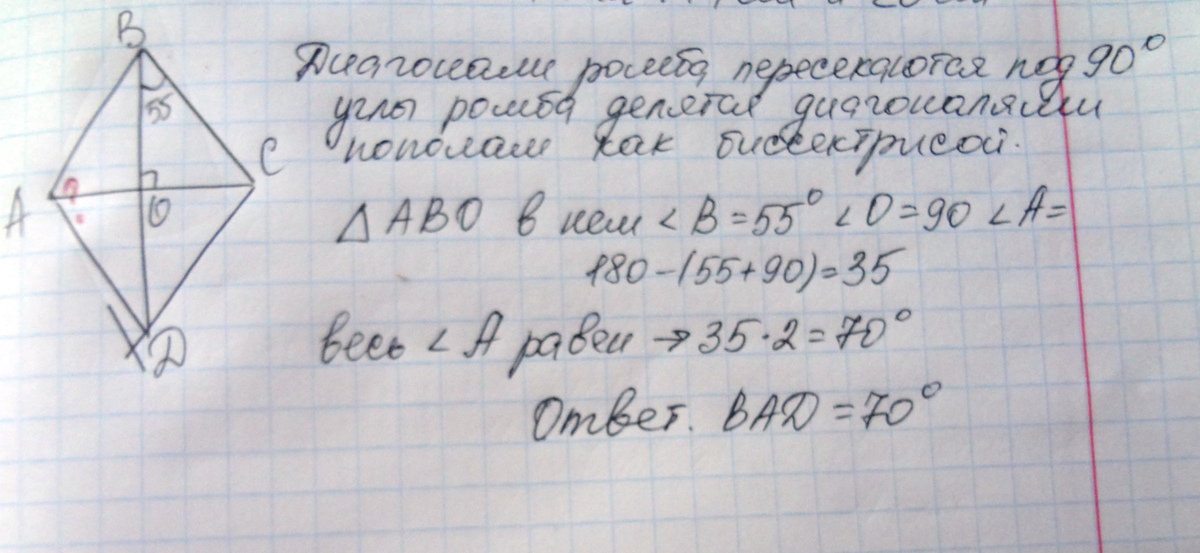 B
55
C
A
?
O
D
Диагонали ромба пересекаются под 90°
углы ромба делятся диагоналями
пополам как биссектрисой.
△ ABO в нем < B = 55° < O = 90 < A =
180 - (55 + 90) = 35
весь < A равен → 35 · 2 = 70°
Ответ. BAD = 70°